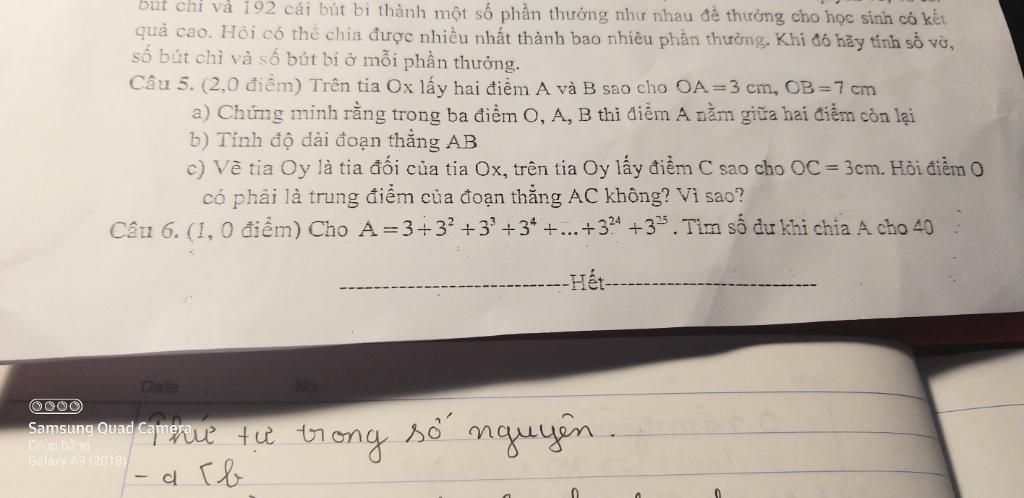 bút chì và 192 cái bút bi thành một số phần thưởng như nhau để thưởng cho học sinh có kết
quả cao. Hỏi có thể chia được nhiều nhất thành bao nhiêu phần thưởng. Khi đó hãy tính số vở,
số bút chì và số bút bi ở mỗi phần thưởng.
Câu 5. (2,0 điểm) Trên tia Ox lấy hai điểm A và B sao cho OA = 3 cm, OB = 7 cm
a) Chứng minh rằng trong ba điểm O, A, B thì điểm A nằm giữa hai điểm còn lại
b) Tính độ dài đoạn thẳng AB
c) Vẽ tia Oy là tia đối của tia Ox, trên tia Oy lấy điểm C sao cho OC = 3cm. Hỏi điểm O
có phải là trung điểm của đoạn thẳng AC không? Vì sao?
Câu 6. (1, 0 điểm) Cho A = 3 + 3² + 3³ + 3⁴ + ... + 3²⁴ + 3²⁵ . Tìm số dư khi chia A cho 40
-----------------------------Hết---------------------------
Date No.
Samsung Quad Camera
Chụp bằng
Galaxy A9 (2018)
Thứ tự trong số nguyên.